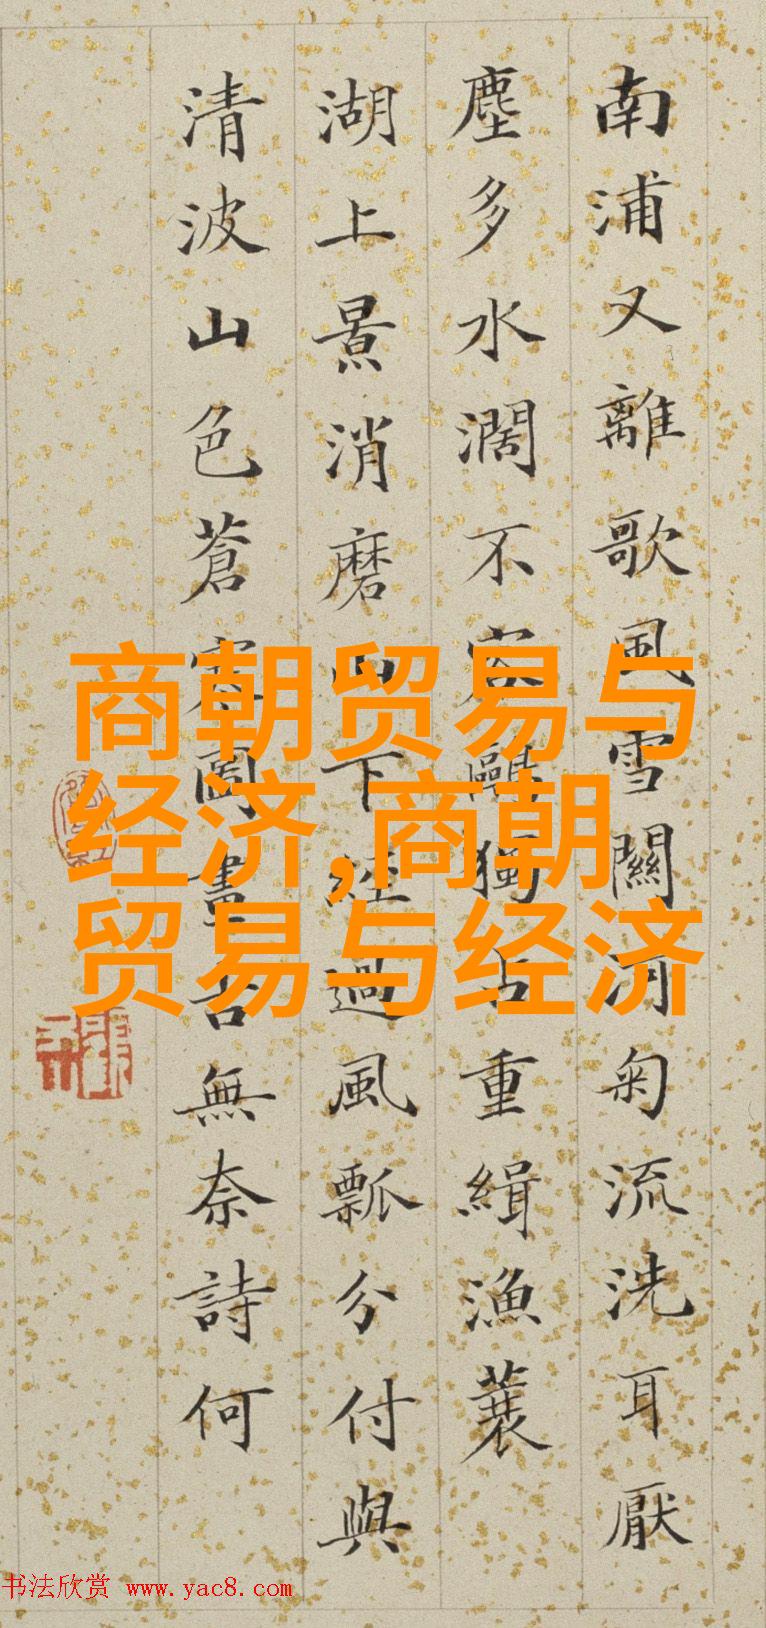 南浦又離歌風雪關河菊流洗耳厭
塵多水濶不容鷗獨占重緝漁蓑
湖上景消磨山下經過風瓢分付與
清波山色蒼寒圖畫古無奈詩何
商朝贸易与
经济,商朝
贸易与经济
书法欣赏 www.yac8.com